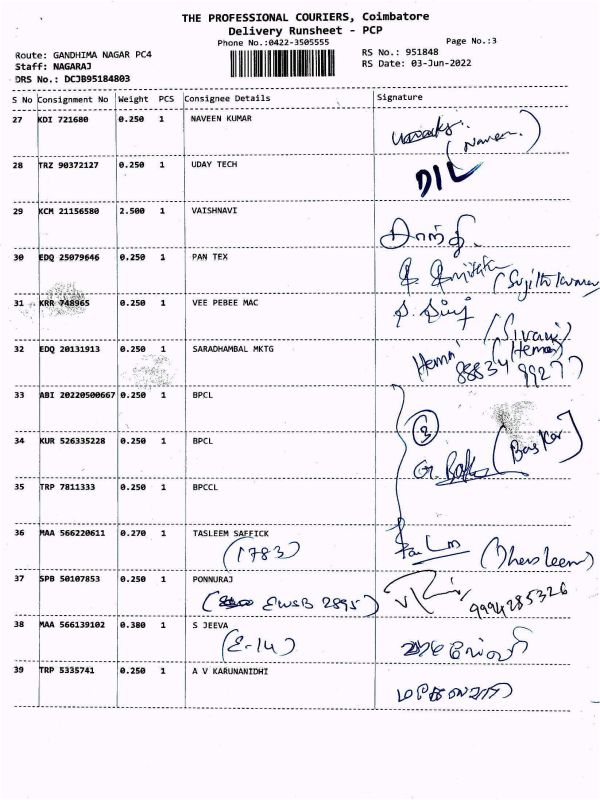 THE PROFESSIONAL COURIERS, Coimbatore
Delivery Runsheet - PCP
Phone No.:0422-3505555
Page No.:3
Route: GANDHIMA NAGAR PC4
RS No.: 951848
Staff: NAGARAJ
RS Date: 03-Jun-2022
DRS No.: DCJB95184803
S No Consignment No Weight PCS Consignee Details Signature
27 KDI 721680 0.250 1 NAVEEN KUMAR
(Naveen)
28 TRZ 90372127 0.250 1 UDAY TECH
29 KCM 21156580 2.500 1 VAISHNAVI
30 EDQ 25079646 0.250 1 PAN TEX
31 KRR 748965 0.250 1 VEE PEBEE MAC
32 EDQ 20131913 0.250 1 SARADHAMBAL MKTG
33 ABI 20220500667 0.250 1 BPCL
3
34 KUR 526335228 0.250 1 BPCL
(Baskar)
35 TRP 7811333 0.250 1 BPCCL
36 MAA 566220611 0.270 1 TASLEEM SAFFICK
(1783)
37 SPB 50107853 0.250 1 PONNURAJ
(EWSB 2895) 9994285326
38 MAA 566139102 0.380 1 S JEEVA
(E-14)
39 TRP 5335741 0.250 1 A V KARUNANIDHI